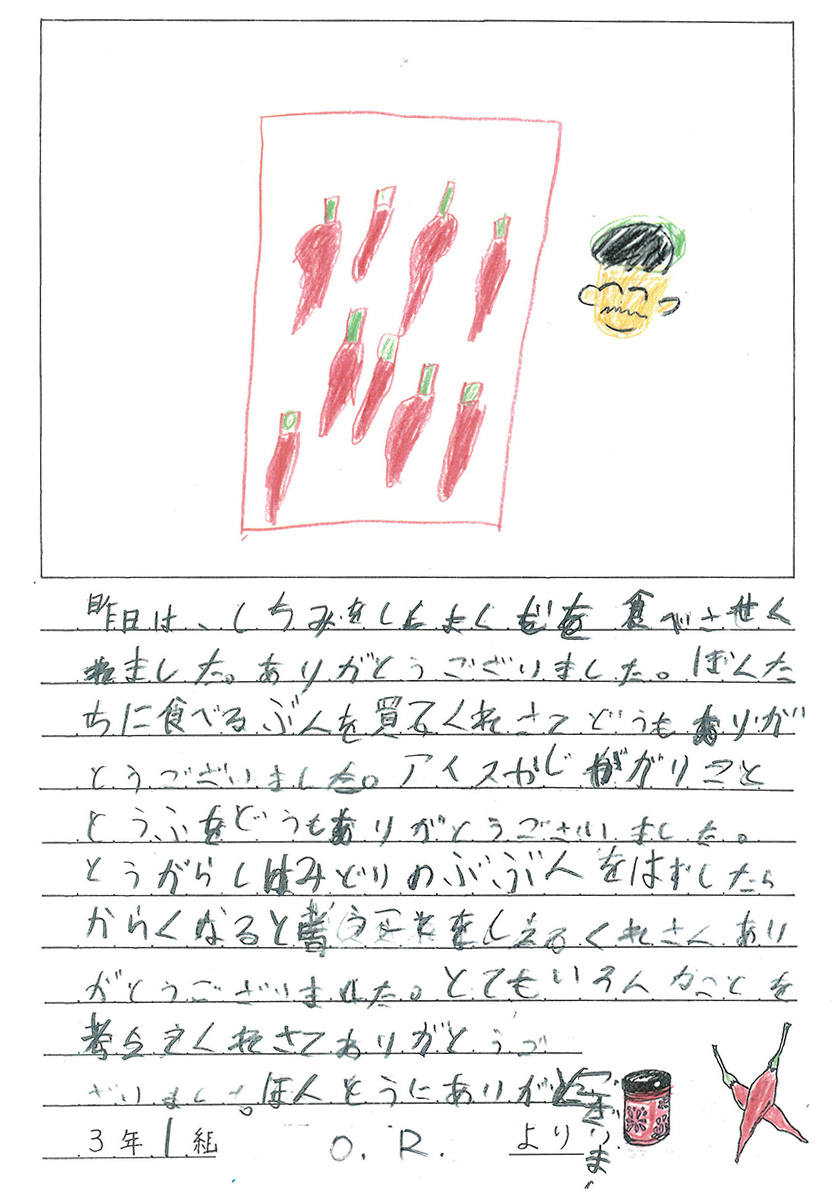 昨日は、しちみをしょくどを食べさせく
れました。ありがとうございました。ぼくた
ちに食べるぶんを買てくれさてどうもありが
とうございました。アイスやじがりこと
とうふをどうもありがとうございました。
とうがらしはみどりのぶぶんをはずしたら
からくなると くれさくあり
がとうございました。とてもいろんなことを
考ええくれさてありがとうご
ざいました。ほんとうにありがとございま
3年1組 O.R. より